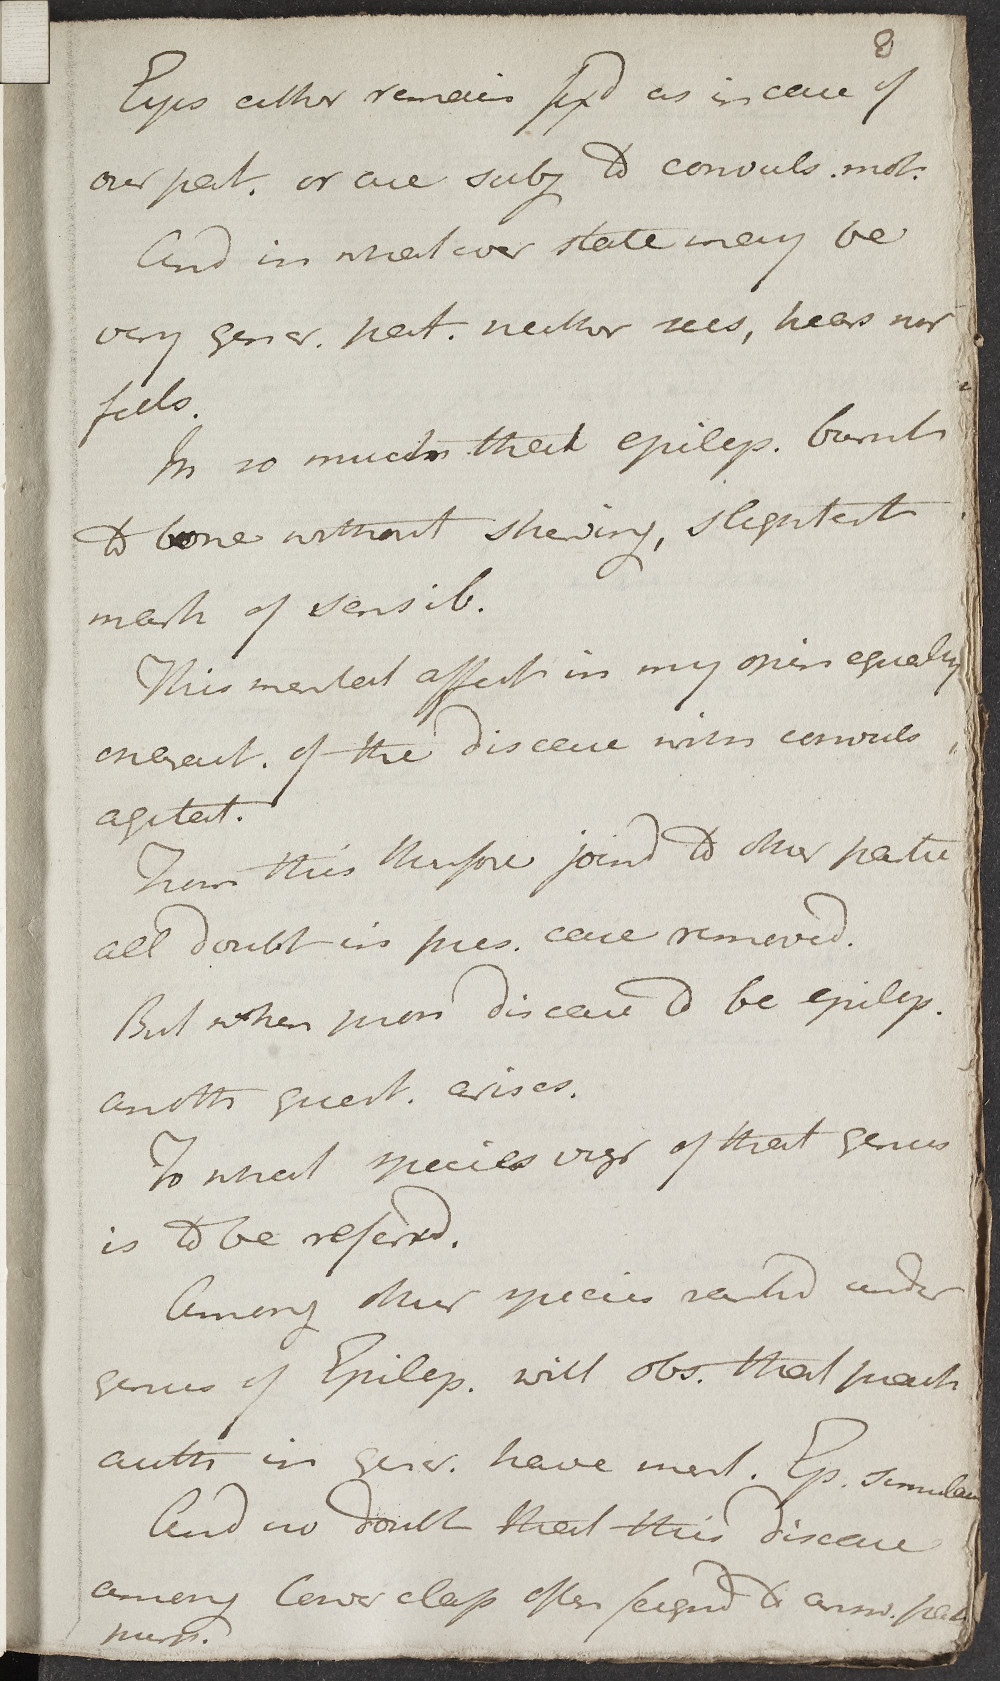 8
Eyes either remain fixd as in case of
our pat. or are subj to convuls. mot.
And in whatever state may be
very gener. pat. neither sees, hears nor
feels.
In so much that epilep. burnt
to bone without shewing, slightest
mark of sensib.
This mental affect in my opin equally
charact. of the disease with convuls
agitat.
From this therfore joind to other partic
all doubt in pres. case removed.
But when pron disease to be epilep.
anoth quest. arises.
To what species of that genus
is to be referrd.
Among other species rankd under
genus of Epilep. will obs. that pract
auth in gener. have ment. Ep. simulata
And no doubt that this disease
among lower class often feignd to answ. part
purp.